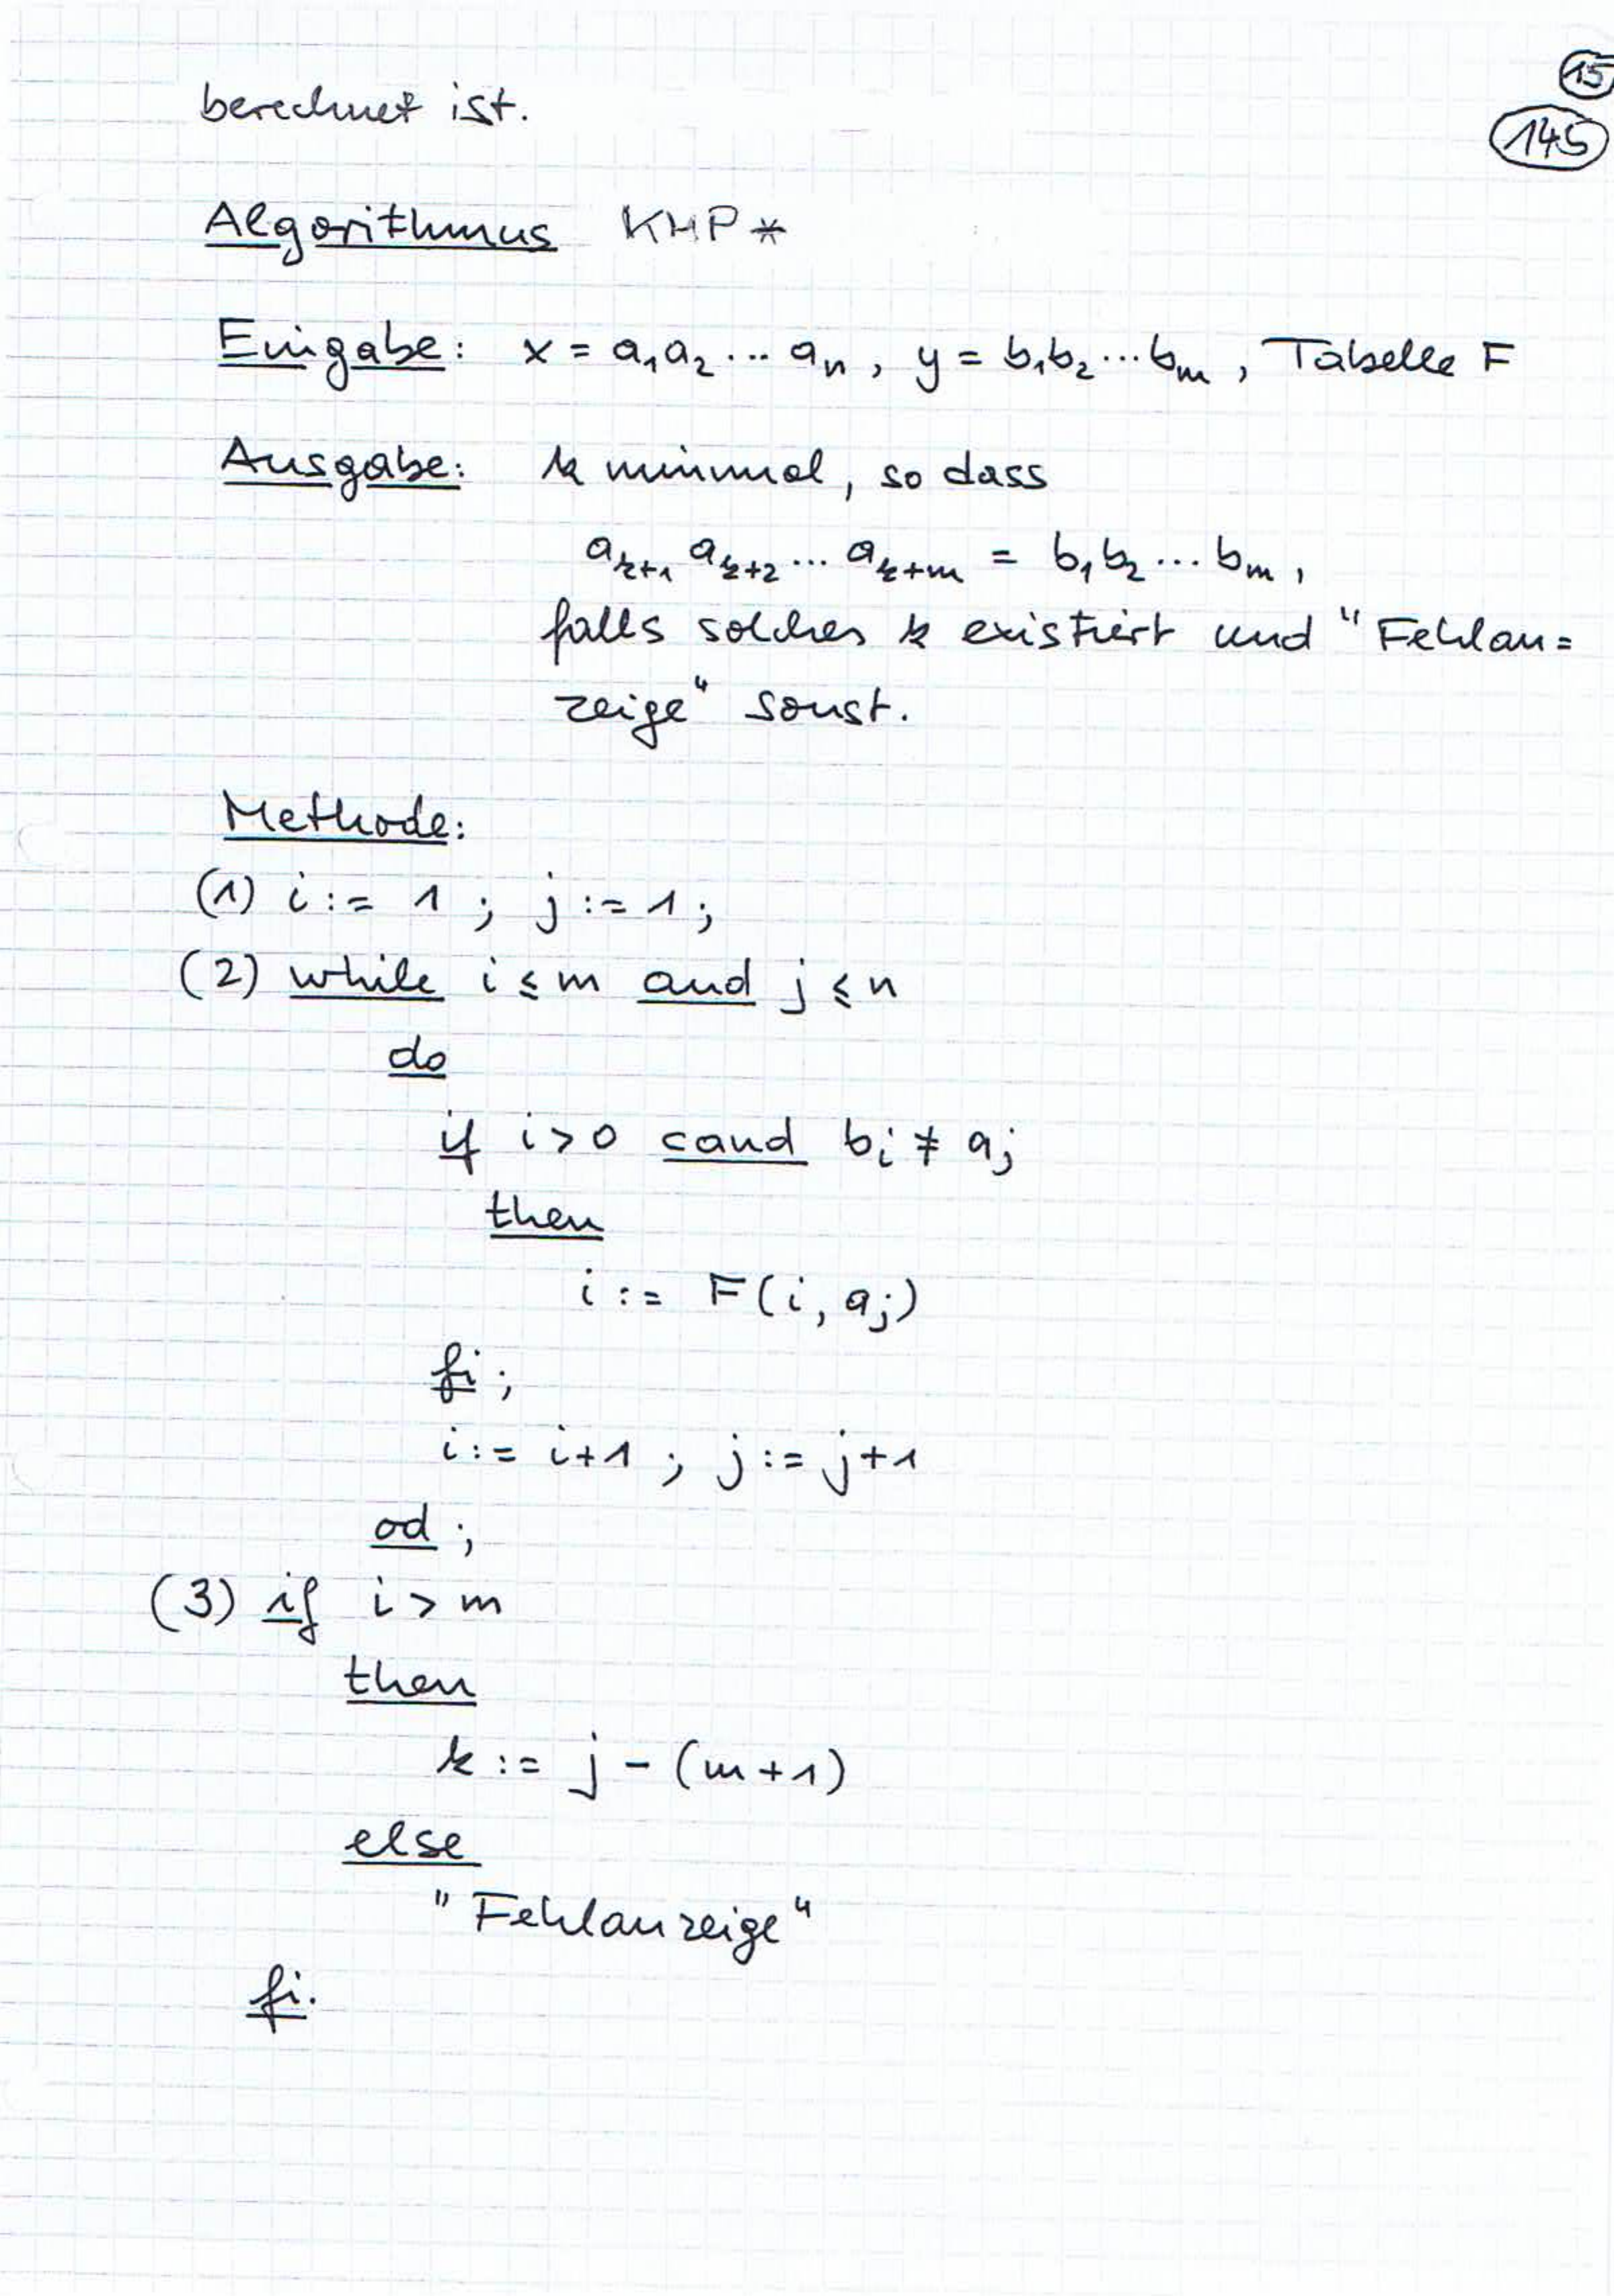 15
berechnet ist.
145
Algorithmus KMP*
Eingabe: x = a₁a₂ ... aₙ, y = b₁b₂ ... bₘ, Tabelle F
Ausgabe: k minimal, so dass
aₖ₊₁ aₖ₊₂ ... aₖ₊ₘ = b₁b₂ ... bₘ,
falls solches k existiert und "Fehlan=
zeige" sonst.
Methode:
(1) i := 1 ; j := 1 ;
(2) while i ≤ m and j ≤ n
do
if i > 0 cand bᵢ ≠ aⱼ
then
i := F(i, aⱼ)
fi ;
i := i+1 ; j := j+1
od ;
(3) if i > m
then
k := j - (m+1)
else
"Fehlanzeige"
fi.